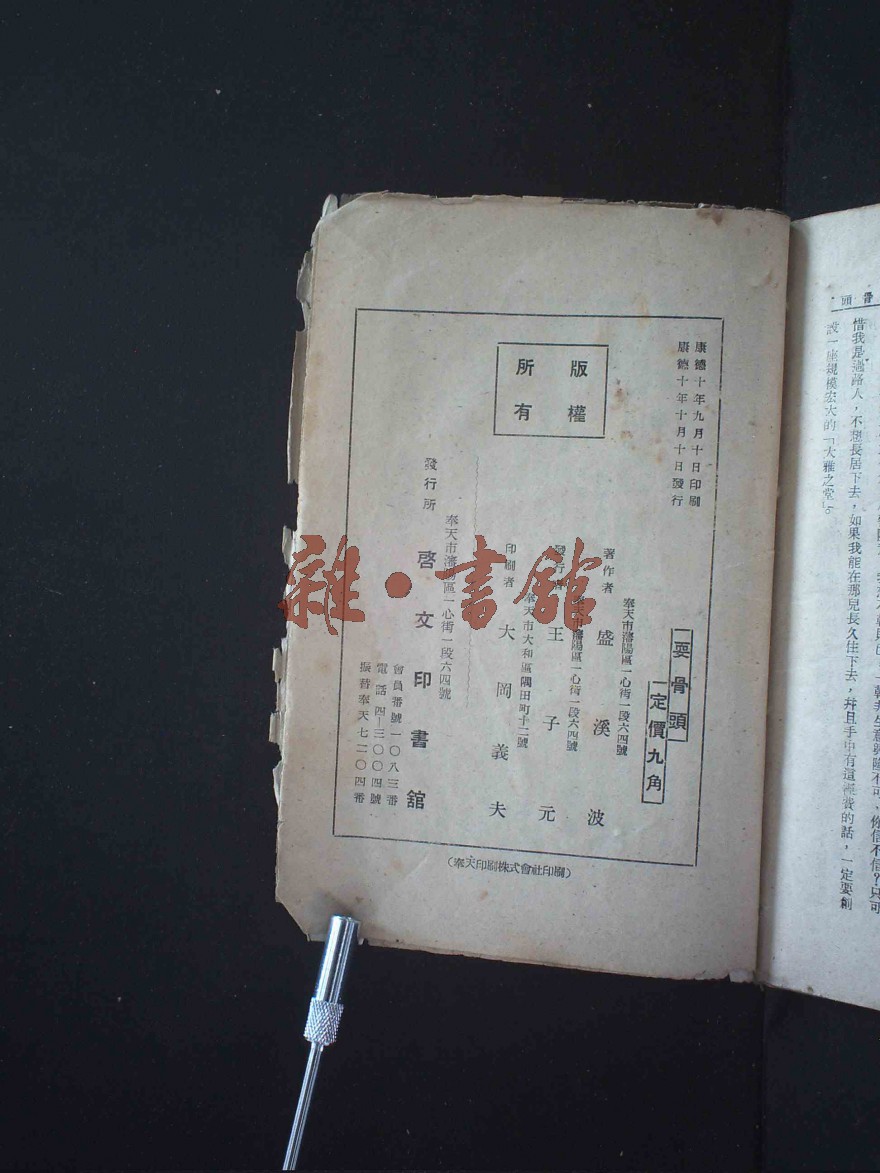 頭 骨
惜我是過路人，不想長居下去，如果我能在那兒長久住下去，幷且手中有這經費的話，一定要創
設一座規模宏大的「大雅之堂」。
康德十年九月十日印刷
康德十年十月十日發行
版權
所有
耍骨頭
定價九角
奉天市瀋陽區一心街一段六四號
著作者 盛溪波
奉天市瀋陽區一心街一段六四號
發行者 王子元
奉天市大和區隅田町十二號
印刷者 大岡義夫
奉天市瀋陽區一心街一段六四號
發行所 啓文印書舘
會員番號一〇八三番
電話四—三〇〇四號
振替奉天七二〇四番
(奉天印刷株式會社印刷)
雜·書館